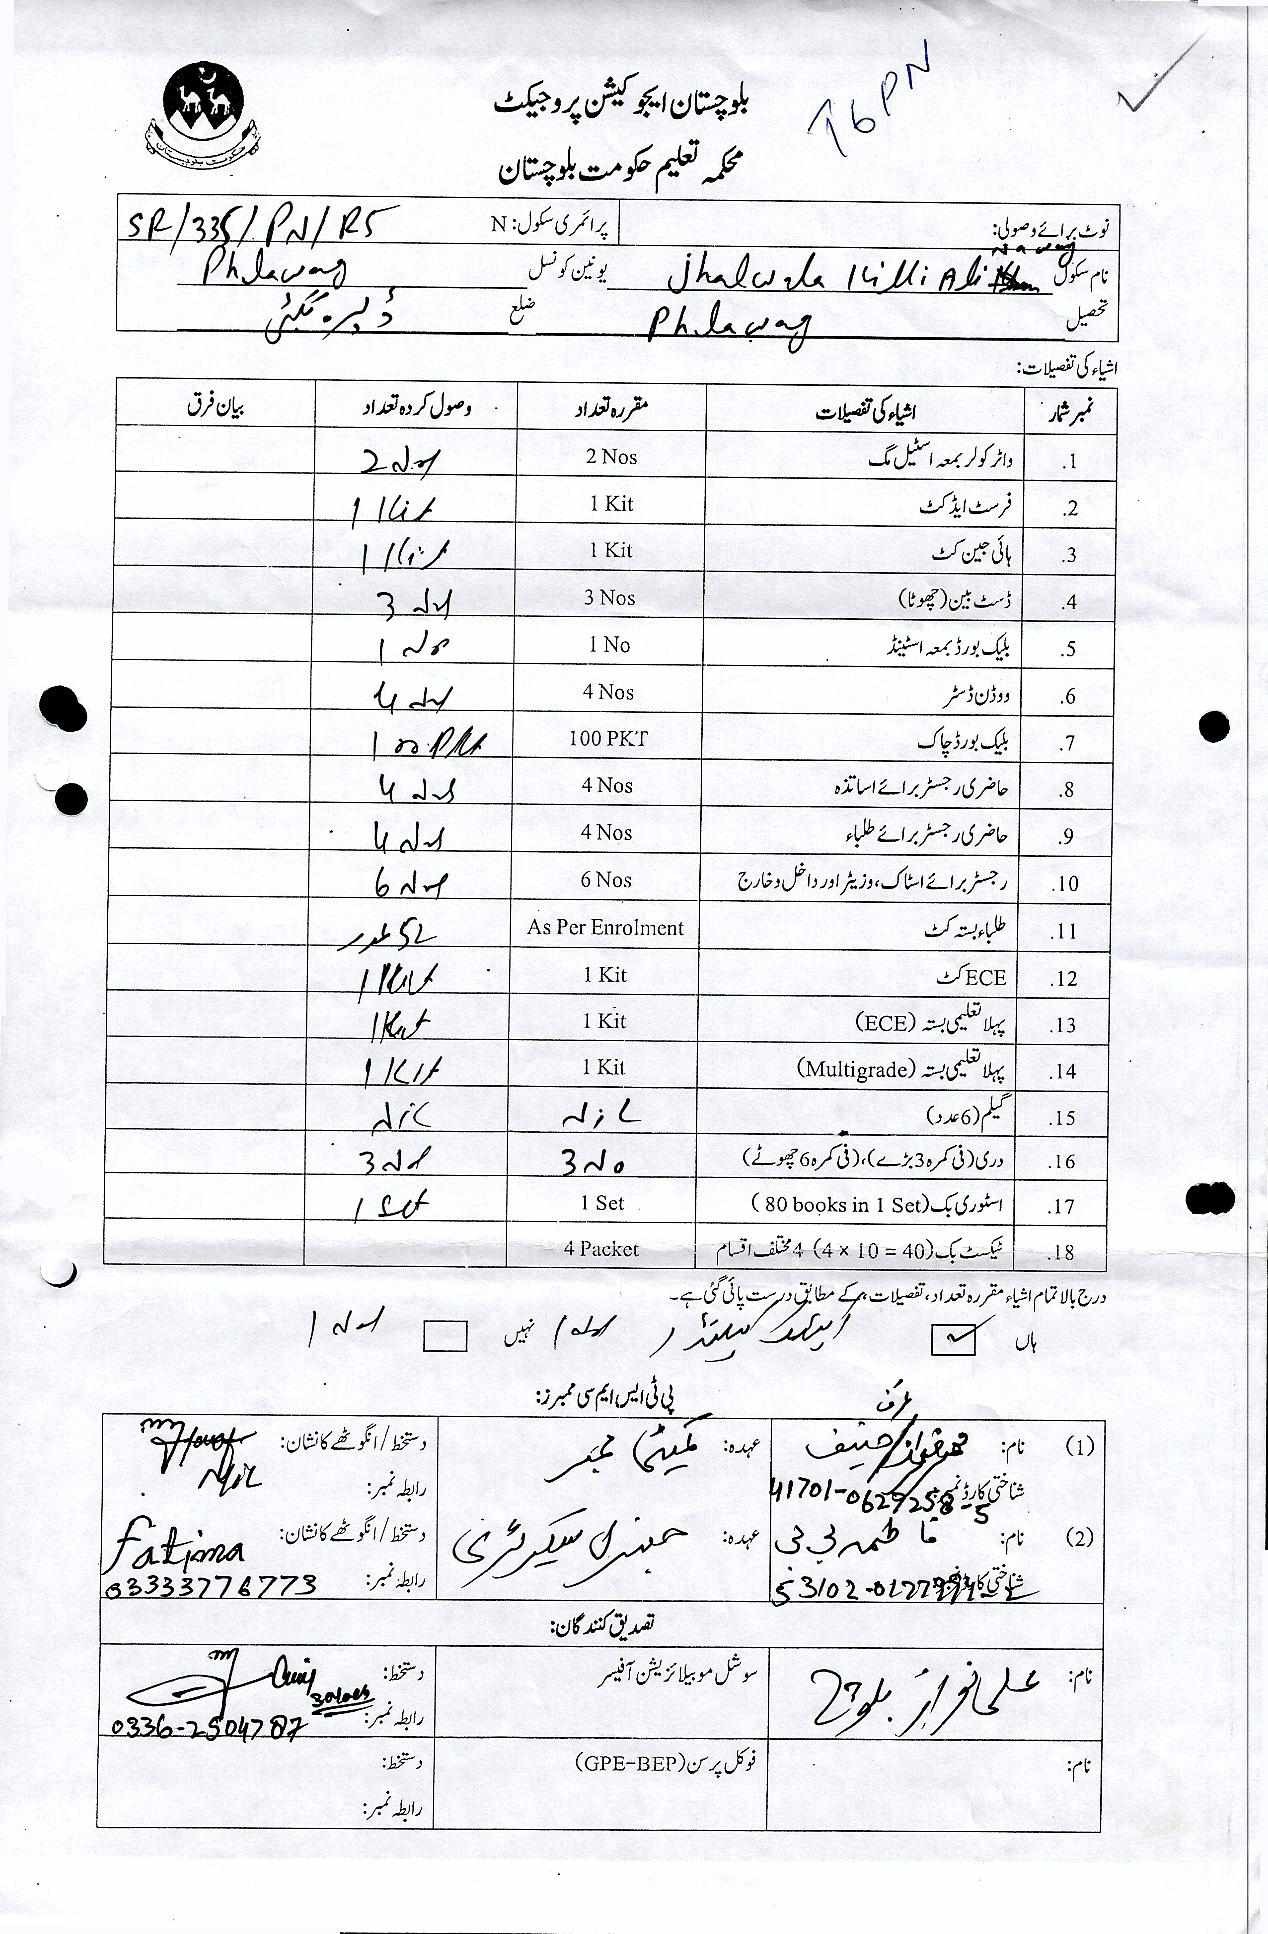 T6PN
حکومت بلوچستان
بلوچستان ایجوکیشن پروجیکٹ
محکمہ تعلیم حکومت بلوچستان
نوٹ برائے وصولی: پرائمری سکول: N SR/335/PN/R5
نام سکول Jhalwda Killi Ali Nawag یونین کونسل Philawag
تحصیل Philawag ضلع ڈیرہ بگٹی
اشیاء کی تفصیلات:
نمبر شمار اشیاء کی تفصیلات مقررہ تعداد وصول کردہ تعداد بیان فرق
.1 واٹر کولر بمعہ اسٹیل مگ 2 Nos 2 Nos
.2 فرسٹ ایڈ کٹ 1 Kit 1 Kit
.3 ہائی جین کٹ 1 Kit 1 Kit
.4 ڈسٹ بین (چھوٹا) 3 Nos 3 Nos
.5 بلیک بورڈ بمعہ اسٹینڈ 1 No 1 No
.6 ووڈن ڈسٹر 4 Nos 4 Nos
.7 بلیک بورڈ چاک 100 PKT 100 PKT
.8 حاضری رجسٹر برائے اساتذہ 4 Nos 4 Nos
.9 حاضری رجسٹر برائے طلباء 4 Nos 4 Nos
.10 رجسٹر برائے اسٹاک، وزیٹر اور داخل و خارج 6 Nos 6 Nos
.11 طلباء بستہ کٹ As Per Enrolment 52 عدد
.12 ECE کٹ 1 Kit 1 Kit
.13 پہلا تعلیمی بستہ (ECE) 1 Kit 1 Kit
.14 پہلا تعلیمی بستہ (Multigrade) 1 Kit 1 Kit
.15 گیلم (6 عدد) Nil Nil
.16 دری (فی کمرہ 3 بڑے)، (فی کمرہ 6 چھوٹے) 3 No 3 Nos
.17 اسٹوری بک (80 books in 1 Set) 1 Set 1 Set
.18 ٹیکسٹ بک (4 × 10 = 40) 4 مختلف اقسام 4 Packet
درج بالا تمام اشیاء مقررہ تعداد، تفصیلات، کے مطابق درست پائی گئی ہے۔
ہاں نہیں
پی ٹی ایس ایم سی ممبرز: عرف
(1) نام: حنیف عہدہ: کمیٹی ممبر دستخط/انگوٹھے کا نشان:
شناختی کارڈ نمبر: 41701-0629258-5 رابطہ نمبر: Nil
(2) نام: فاطمہ بی بی عہدہ: جنرل سیکرٹری دستخط/انگوٹھے کا نشان: Fatima
شناختی کارڈ نمبر: رابطہ نمبر: 03333776773
تصدیق کنندگان:
نام: علی نواز بلوچ سوشل موبیلائزیشن آفیسر دستخط:
رابطہ نمبر: 0336-2504787
نام: فوکل پرسن (GPE-BEP) دستخط:
رابطہ نمبر: